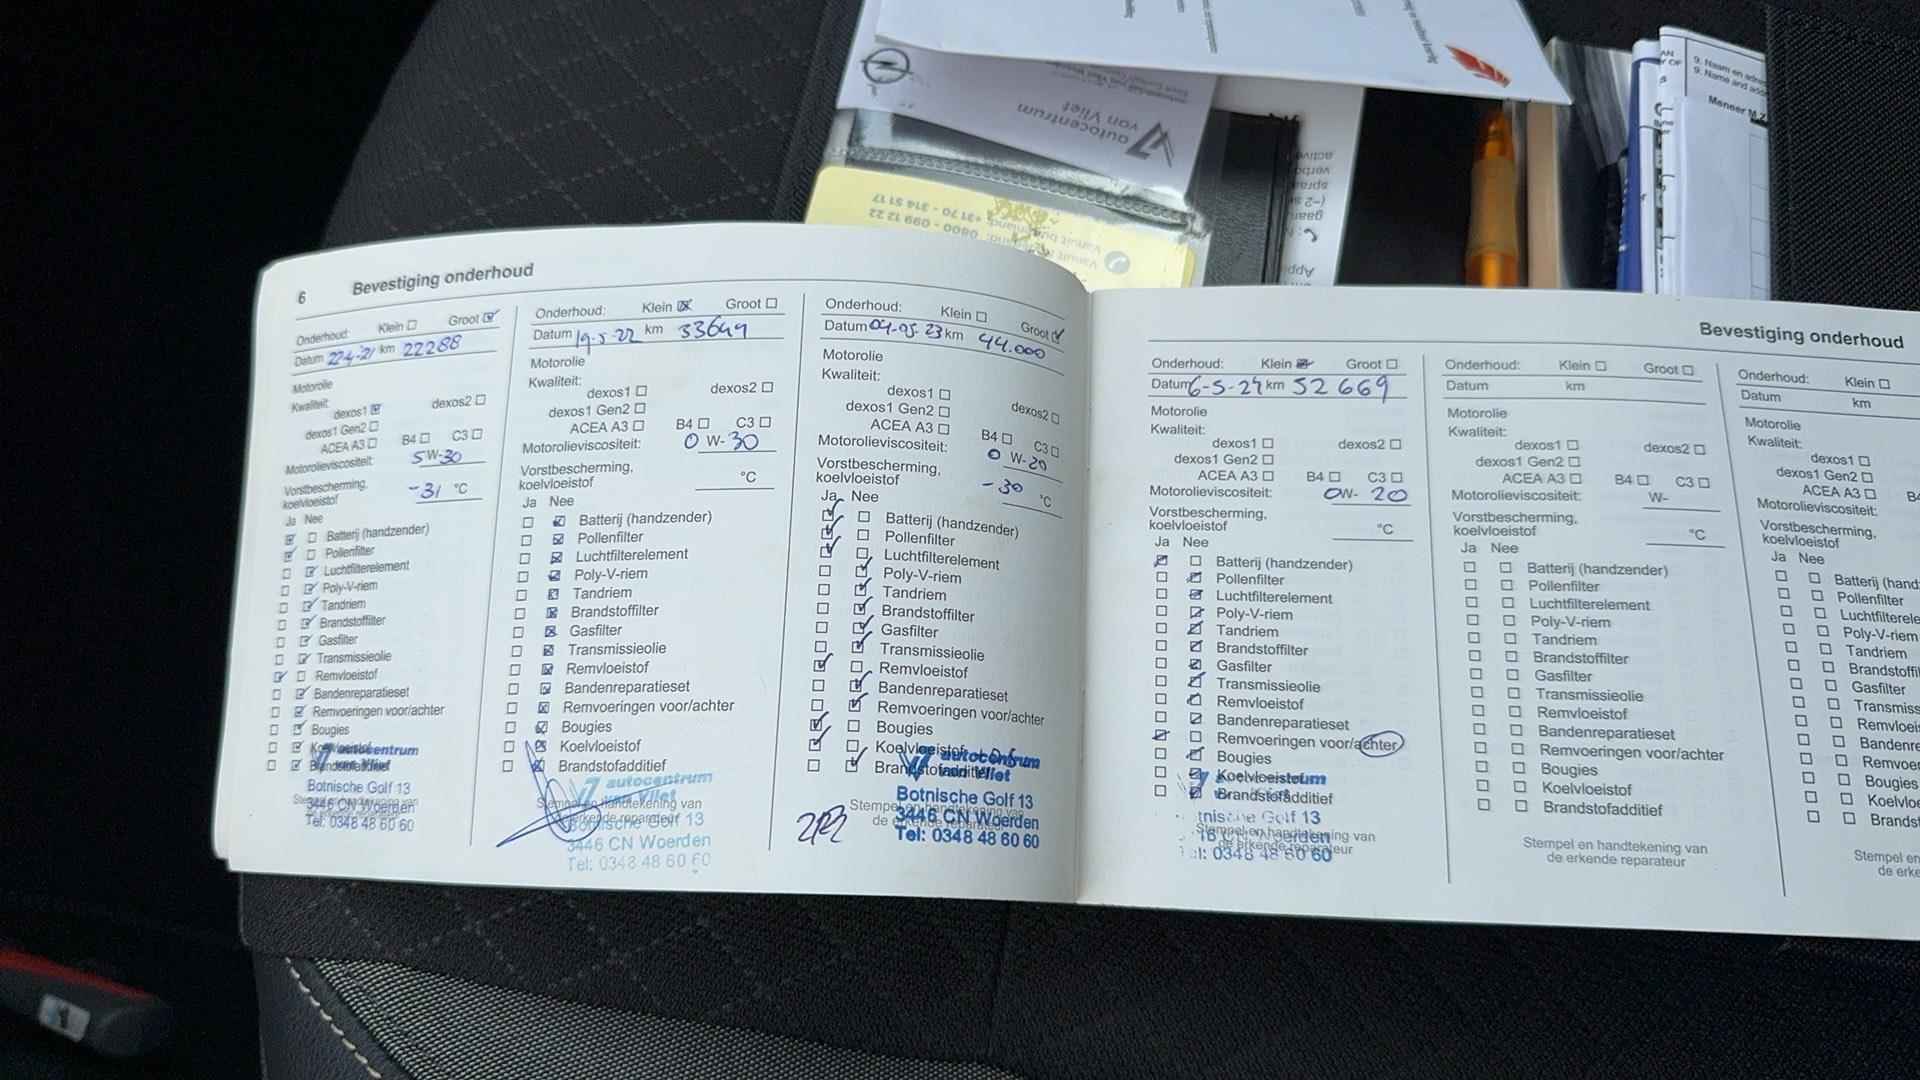 Meneer M.Z
9. Naam en adre
9. Name and add
autocentrum
van Vliet
6 Bevestiging onderhoud
Onderhoud: Klein Groot
Datum 22-4-'21 km 22288
Motorolie
Kwaliteit:
dexos1 dexos2
dexos1 Gen2
ACEA A3 B4 C3
Motorolieviscositeit: 5W-30
Vorstbescherming,
koelvloeistof -31 °C
Ja Nee
Batterij (handzender)
Pollenfilter
Luchtfilterelement
Poly-V-riem
Tandriem
Brandstoffilter
Gasfilter
Transmissieolie
Remvloeistof
Bandenreparatieset
Remvoeringen voor/achter
Bougies
Koelvloeistof
Brandstofadditief
autocentrum
van Vliet
Botnische Golf 13
3446 CN Woerden
Tel: 0348 48 60 60
Onderhoud: Klein Groot
Datum 19-5-22 km 33649
Motorolie
Kwaliteit:
dexos1 dexos2
dexos1 Gen2
ACEA A3 B4 C3
Motorolieviscositeit: 0 W-30
Vorstbescherming,
koelvloeistof °C
Ja Nee
Batterij (handzender)
Pollenfilter
Luchtfilterelement
Poly-V-riem
Tandriem
Brandstoffilter
Gasfilter
Transmissieolie
Remvloeistof
Bandenreparatieset
Remvoeringen voor/achter
Bougies
Koelvloeistof
Brandstofadditief
autocentrum
van Vliet
Stempel en handtekening van
de erkende reparateur
Botnische Golf 13
3446 CN Woerden
Tel: 0348 48 60 60
Onderhoud: Klein Groot
Datum 04-05-23 km 44.000
Motorolie
Kwaliteit:
dexos1 dexos2
dexos1 Gen2
ACEA A3 B4 C3
Motorolieviscositeit: 0 W-20
Vorstbescherming,
koelvloeistof -30 °C
Ja Nee
Batterij (handzender)
Pollenfilter
Luchtfilterelement
Poly-V-riem
Tandriem
Brandstoffilter
Gasfilter
Transmissieolie
Remvloeistof
Bandenreparatieset
Remvoeringen voor/achter
Bougies
Koelvloeistof
Brandstofadditief
autocentrum
van Vliet
Stempel en handtekening van
de erkende reparateur
Botnische Golf 13
3446 CN Woerden
Tel: 0348 48 60 60
Bevestiging onderhoud
Onderhoud: Klein Groot
Datum 6-5-24 km 52 669
Motorolie
Kwaliteit:
dexos1 dexos2
dexos1 Gen2
ACEA A3 B4 C3
Motorolieviscositeit: 0W- 20
Vorstbescherming,
koelvloeistof °C
Ja Nee
Batterij (handzender)
Pollenfilter
Luchtfilterelement
Poly-V-riem
Tandriem
Brandstoffilter
Gasfilter
Transmissieolie
Remvloeistof
Bandenreparatieset
Remvoeringen voor/achter
Bougies
Koelvloeistof
Brandstofadditief
Stempel en handtekening van
de erkende reparateur
tnische Golf 13
CN Woerden
0348 48 60 60
Onderhoud: Klein Groot
Datum km
Motorolie
Kwaliteit:
dexos1 dexos2
dexos1 Gen2
ACEA A3 B4 C3
Motorolieviscositeit: W-
Vorstbescherming,
koelvloeistof °C
Ja Nee
Batterij (handzender)
Pollenfilter
Luchtfilterelement
Poly-V-riem
Tandriem
Brandstoffilter
Gasfilter
Transmissieolie
Remvloeistof
Bandenreparatieset
Remvoeringen voor/achter
Bougies
Koelvloeistof
Brandstofadditief
Stempel en handtekening van
de erkende reparateur
Onderhoud: Klein
Datum km
Motorolie
Kwaliteit:
dexos1
dexos1 Gen2
ACEA A3 B4
Motorolieviscositeit:
Vorstbescherming,
koelvloeistof
Ja Nee
Batterij (hand
Pollenfilter
Luchtfiltere
Poly-V-riem
Tandriem
Brandstoffi
Gasfilter
Transmiss
Remvloei
Bandenre
Remvoe
Bougies
Koelvlo
Brands
Stempel en
de erke